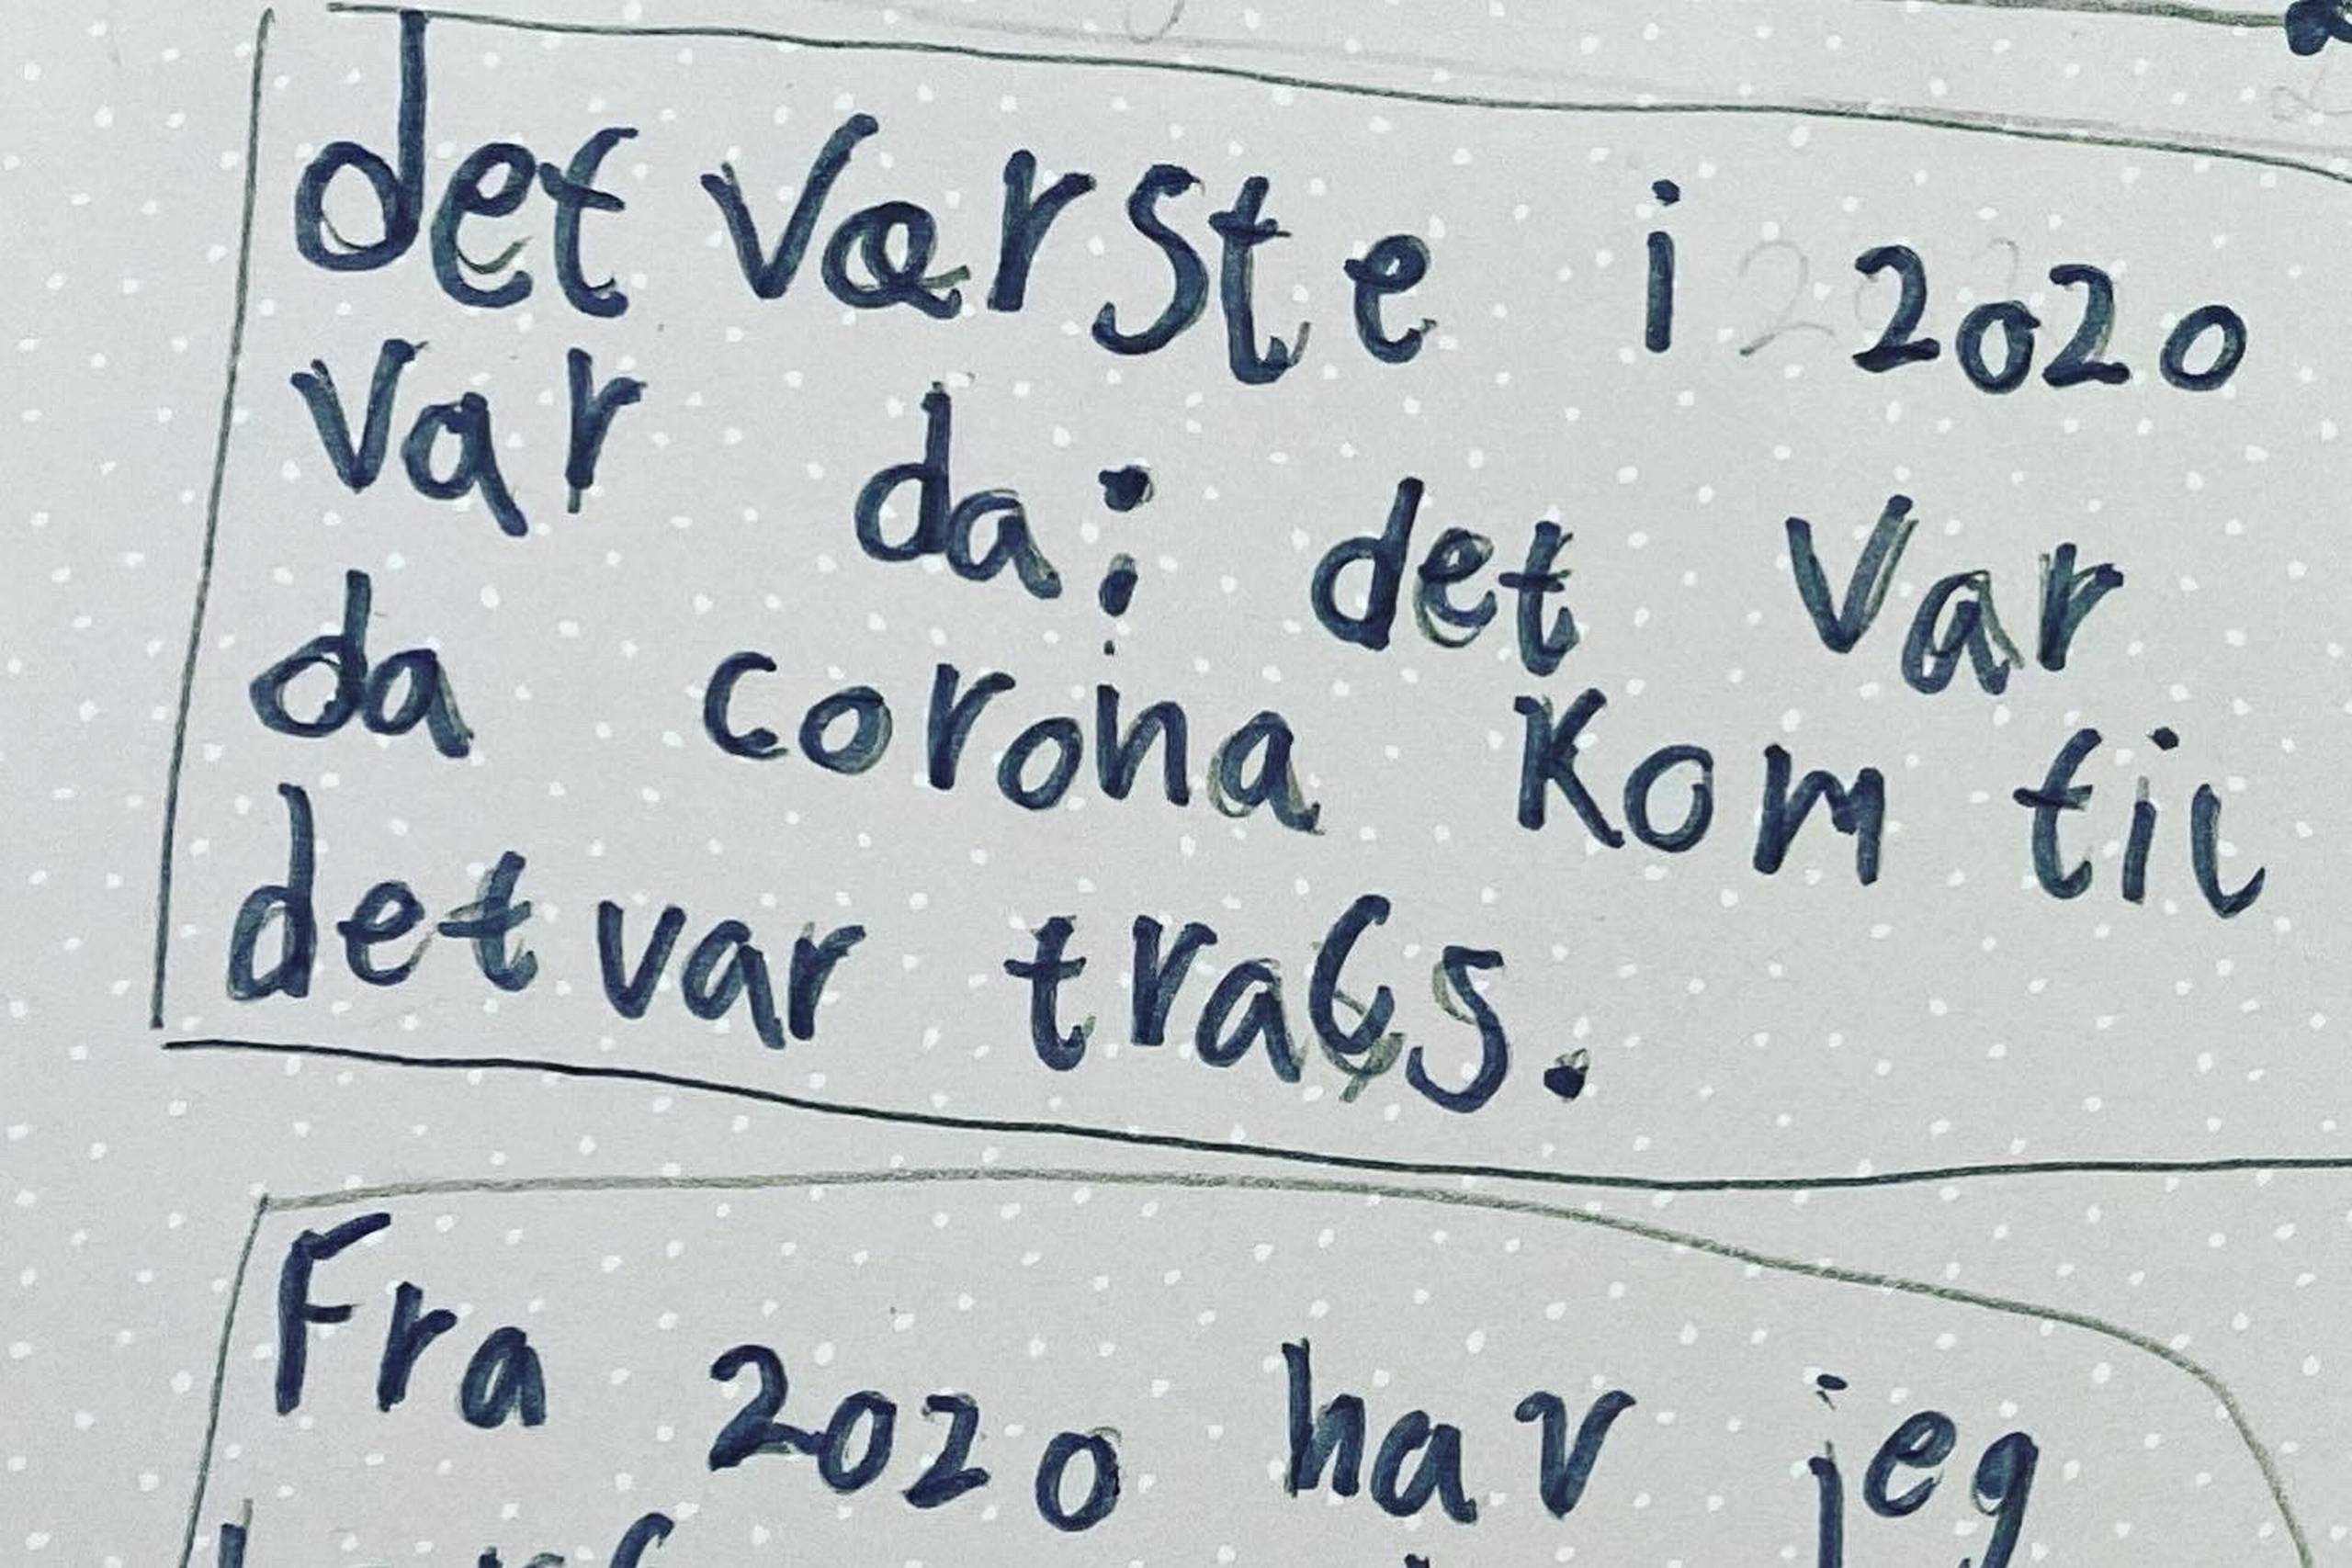 det værste i 2020
var da: det var
da corona kom til
det var træls.
Fra 2020 har jeg